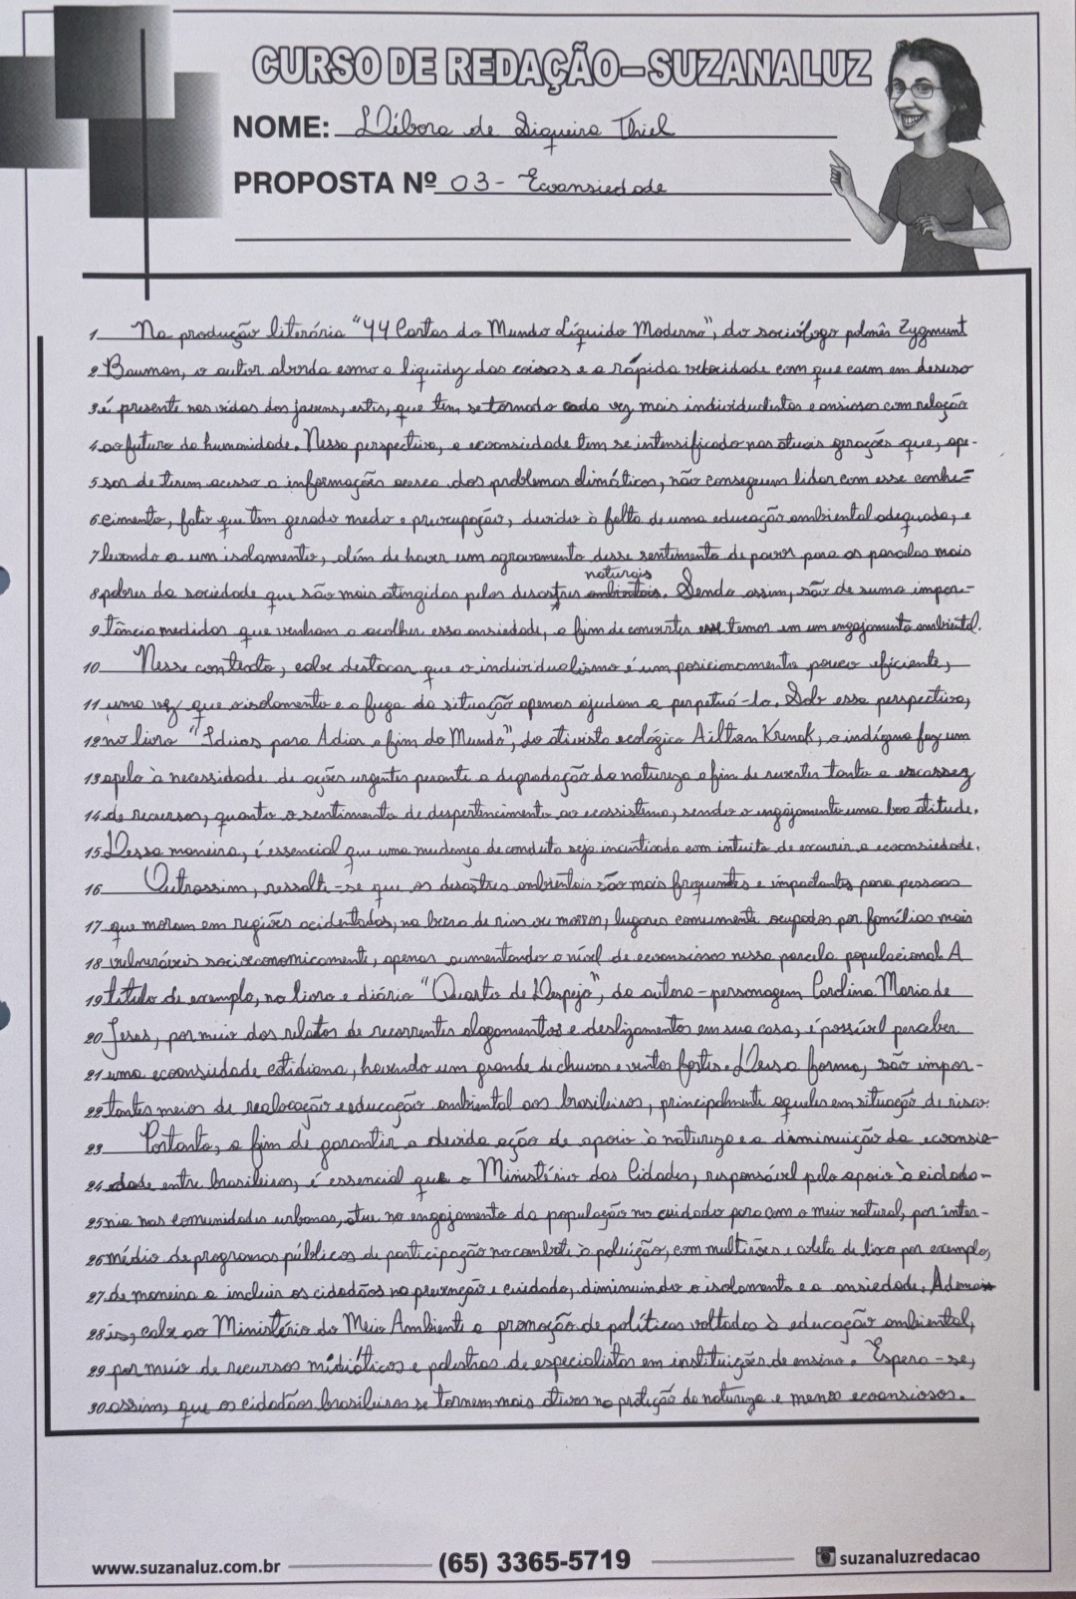 CURSO DE REDAÇÃO-SUZANA LUZ
NOME: Débora de Siqueira Thiel
PROPOSTA Nº 03 - Ecoansiedade
1 Na produção literária "44 Cartas do Mundo Líquido Moderno", do sociólogo polonês Zygmunt
2 Bauman, o autor aborda como a liquidez das coisas e a rápida velocidade com que caem em desuso
3 é presente nas vidas dos jovens, estes, que tem se tornado cada vez mais individualistas e ansiosos com relação
4 ao futuro da humanidade. Nessa perspectiva, a ecoansiedade tem se intensificado nas atuais gerações que, ape-
5 sar de terem acesso a informações acerca dos problemas climáticos, não conseguem lidar com esse conhe-
6 cimento, fato que tem gerado medo e preocupação, devido à falta de uma educação ambiental adequada, e
7 levando a um isolamento, além de haver um agravamento desse sentimento de pavor para as parcelas mais
8 pobres da sociedade que são mais atingidas pelos desastres naturais. Sendo assim, são de suma impor-
9 tância medidas que venham a acolher essa ansiedade, a fim de converter esse temor em um engajamento ambiental.
10 Nesse contexto, cabe destacar que o individualismo é um posicionamento pouco eficiente,
11 uma vez que o isolamento e a fuga da situação apenas ajudam a perpetuá-la. Sob essa perspectiva,
12 no livro "Ideias para Adiar o fim do Mundo", do ativista ecológico Ailton Krenak, o indígena faz um
13 apelo à necessidade de ações urgentes perante a degradação da natureza a fim de reverter tanto a escassez
14 de recursos, quanto o sentimento de despertencimento ao ecossistema, sendo o engajamento uma boa atitude.
15 Dessa maneira, é essencial que uma mudança de conduta seja incentivada com intuito de exaurir a ecoansiedade.
16 Outrossim, ressalte-se que os desastres ambientais são mais frequentes e impactantes para pessoas
17 que moram em regiões acidentadas, na beira de rios ou morros, lugares comumente ocupados por famílias mais
18 vulneráveis socioeconomicamente, apenas aumentando o nível de ecoansiosos nessa parcela populacional. A
19 título de exemplo, no livro e diário "Quarto de Despejo", da autora-personagem Carolina Maria de
20 Jesus, por meio dos relatos de recorrentes alagamentos e deslizamentos em sua casa, é possível perceber
21 uma ecoansiedade cotidiana, havendo um grande de chuvas e ventos fortes. Dessa forma, são impor-
22 tantes meios de realocação e educação ambiental aos brasileiros, principalmente aqueles em situação de risco.
23 Portanto, a fim de garantir a devida ação de apoio à natureza e a dimminuição da ecoansie-
24 dade entre brasileiros, é essencial que o Ministério das Cidades, responsável pelo apoio à cidada-
25 nia nas comunidades urbanas, atue no engajamento da população no cuidado para com o meio natural, por inter-
26 médio de programas públicos de participação no combate à poluição, com multirões e coleta de lixo por exemplo,
27 de maneira a incluir os cidadãos na prevenção e cuidado, diminuindo o isolamento e a ansiedade. Adema
28 is, cabe ao Ministério do Meio Ambiente a promoção de políticas voltadas à educação ambiental,
29 por meio de recursos midiáticos e palestras de especialistas em instituições de ensino. Espera-se,
30 assim, que os cidadãos brasileiros se tornem mais ativos na proteção da natureza e menos ecoansiosos.
www.suzanaluz.com.br (65) 3365-5719 suzanaluzredacao